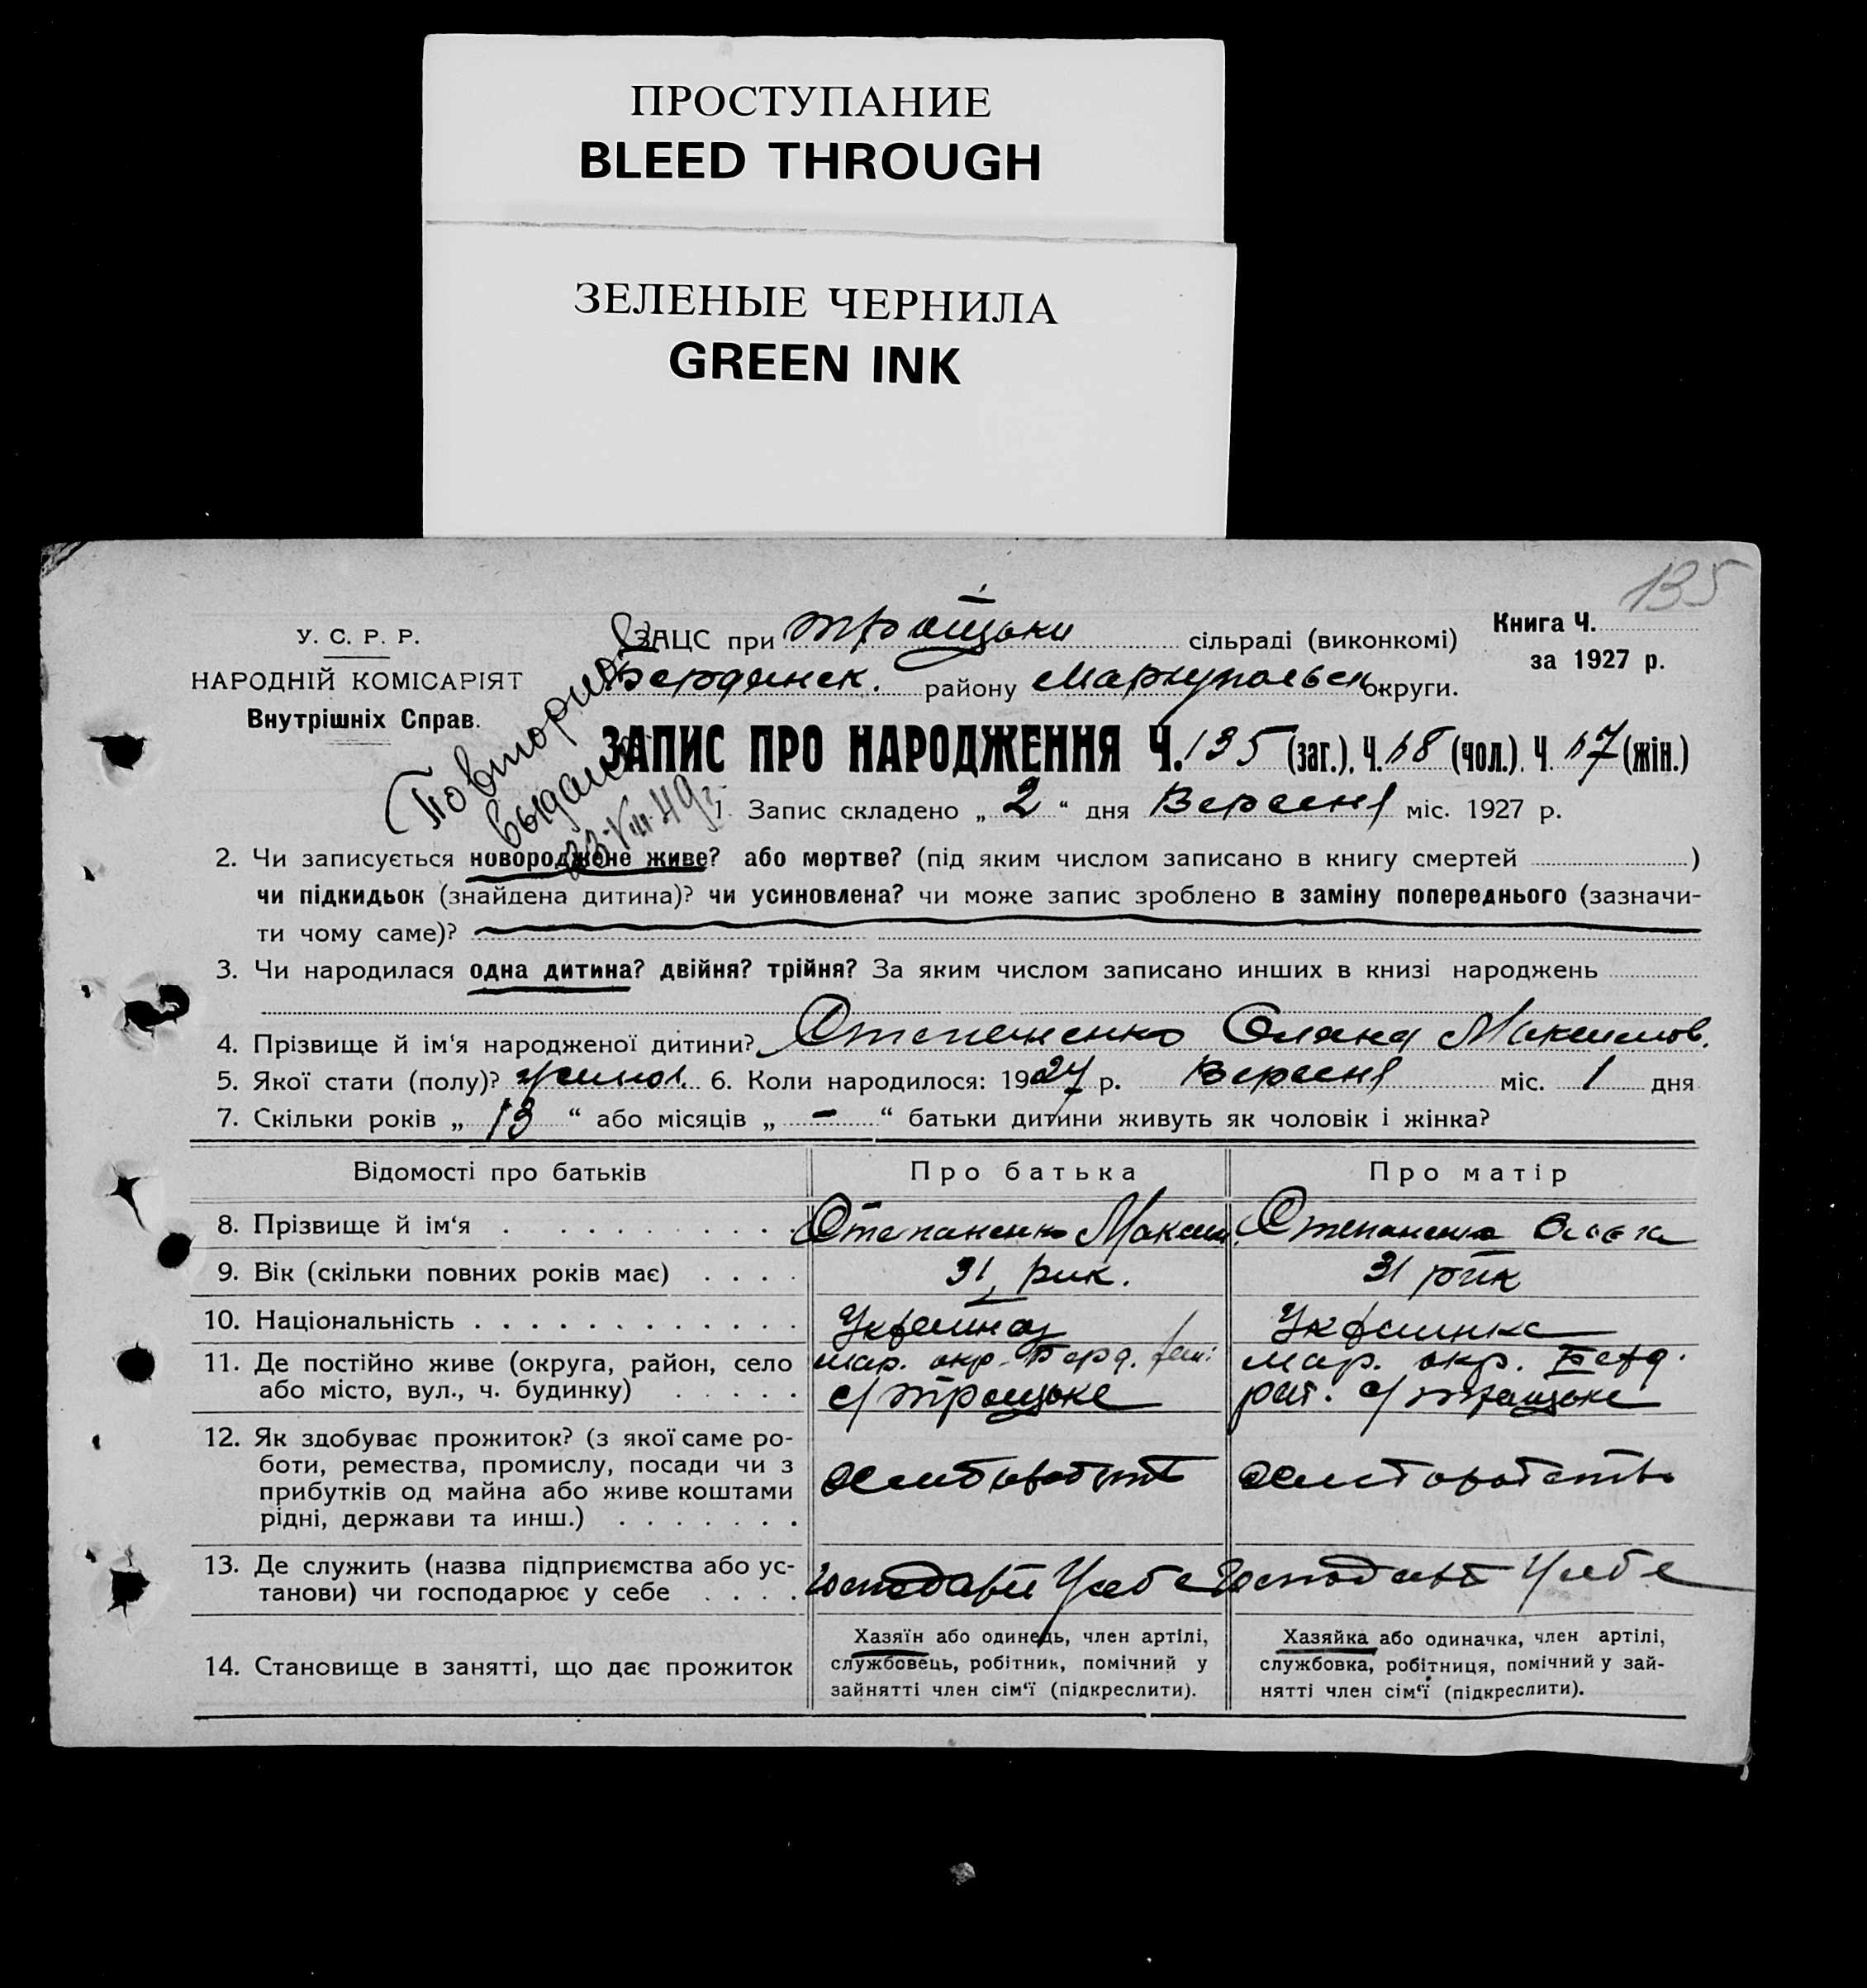 ПРОСТУПАНИЕ
BLEED THROUGH
ЗЕЛЕНЫЕ ЧЕРНИЛА
GREEN INK
135
У. С. Р. Р.
НАРОДНІЙ КОМІСАРІЯТ
Внутрішніх Справ.
ЗАЦС при Троїцьки сільраді (виконкомі)
Книга Ч.
за 1927 р.
Бердянск. району Маріупольськ округи.
Повторное
выдано
23.VIII.49 г.
ЗАПИС ПРО НАРОДЖЕННЯ Ч. 135 (заг.), Ч. 68 (чол.), Ч. 67 (жін.)
1. Запис складено „ 2 “ дня Вересня міс. 1927 р.
2. Чи записується новороджене живе? або мертве? (під яким числом записано в книгу смертей )
чи підкидьок (знайдена дитина)? чи усиновлена? чи може запис зроблено в заміну попереднього (зазначи-
ти чому саме)?
3. Чи народилася одна дитина? двійня? трійня? За яким числом записано инших в книзі народжень
4. Прізвище й ім‘я народженої дитини? Степаненко Олена Максимов.
5. Якої стати (полу)? жиноч. 6. Коли народилося: 1927 р. Вересня міс. 1 дня
7. Скільки років „ 13 “ або місяців „ — “ батьки дитини живуть як чоловік і жінка?
Відомості про батьків Про батька Про матір
8. Прізвище й ім‘я Степаненко Максим Степаненко
9. Вік (скільки повних років має) 31 рик. 31 рик
10. Національність Українец Українка
11. Де постійно живе (округа, район, село мар. окр. Берд. рай. мар. окр. Берд.
або місто, вул., ч. будинку) с/ Троицьке рай. с/ Троицьке
12. Як здобуває прожиток? (з якої саме ро-
боти, ремества, промислу, посади чи з
прибутків од майна або живе коштами
рідні, держави та инш.)
13. Де служить (назва підприємства або ус- Господарь У себе Господарь У себе
танови) чи господарює у себе
14. Становище в занятті, що дає прожиток
Хазяїн або одинець, член артілі,
службовець, робітник, помічний у
зайнятті член сім‘ї (підкреслити).
Хазяйка або одиначка, член артілі,
службовка, робітниця, помічний у зай-
нятті член сім‘ї (підкреслити).